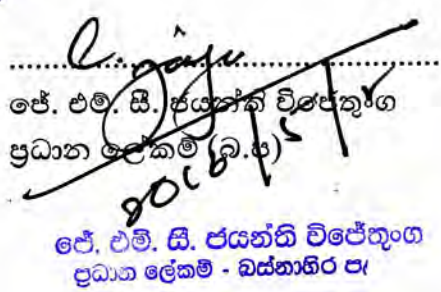 ජේ. එම්. සී. ජයන්ති විජේතුංග
ප්‍රධාන ලේකම් (බ.ප)
ජේ. එම්. සී. ජයන්ති විජේතුංග
ප්‍රධාන ලේකම් - බස්නාහිර